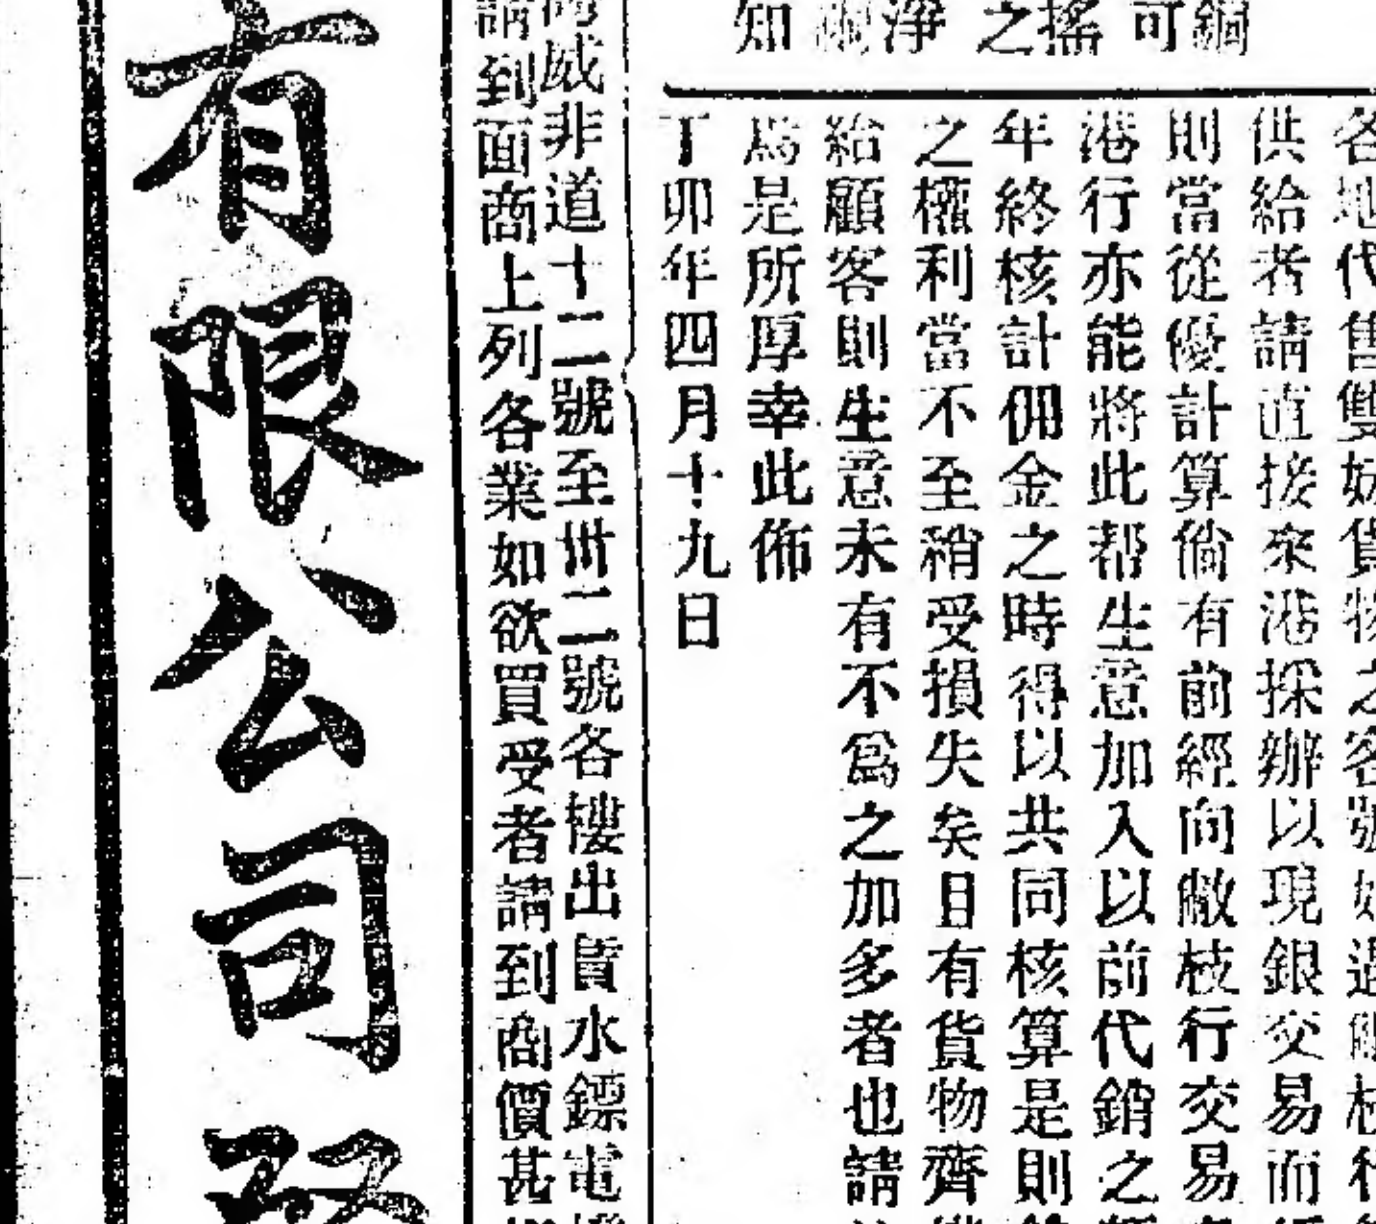 知 淨 之搖 可鋼
各地代售雙妹貨物之客號如過
供給者請直接來港採辦以現銀交易而
則當從優計算倘有前經向敝枝行交易
港行亦能將此帮生意加入以前代銷之
年終核計佣金之時得以共同核算是則
之權利當不至稍受損失矣且有貨物齊
給顧客則生意未有不爲之加多者也請
爲是所厚幸此佈
丁卯年四月十九日
威非道十二號至卅二號各樓出賃水鏢電
請到面商上列各業如欲買受者請到商價甚
有限公司